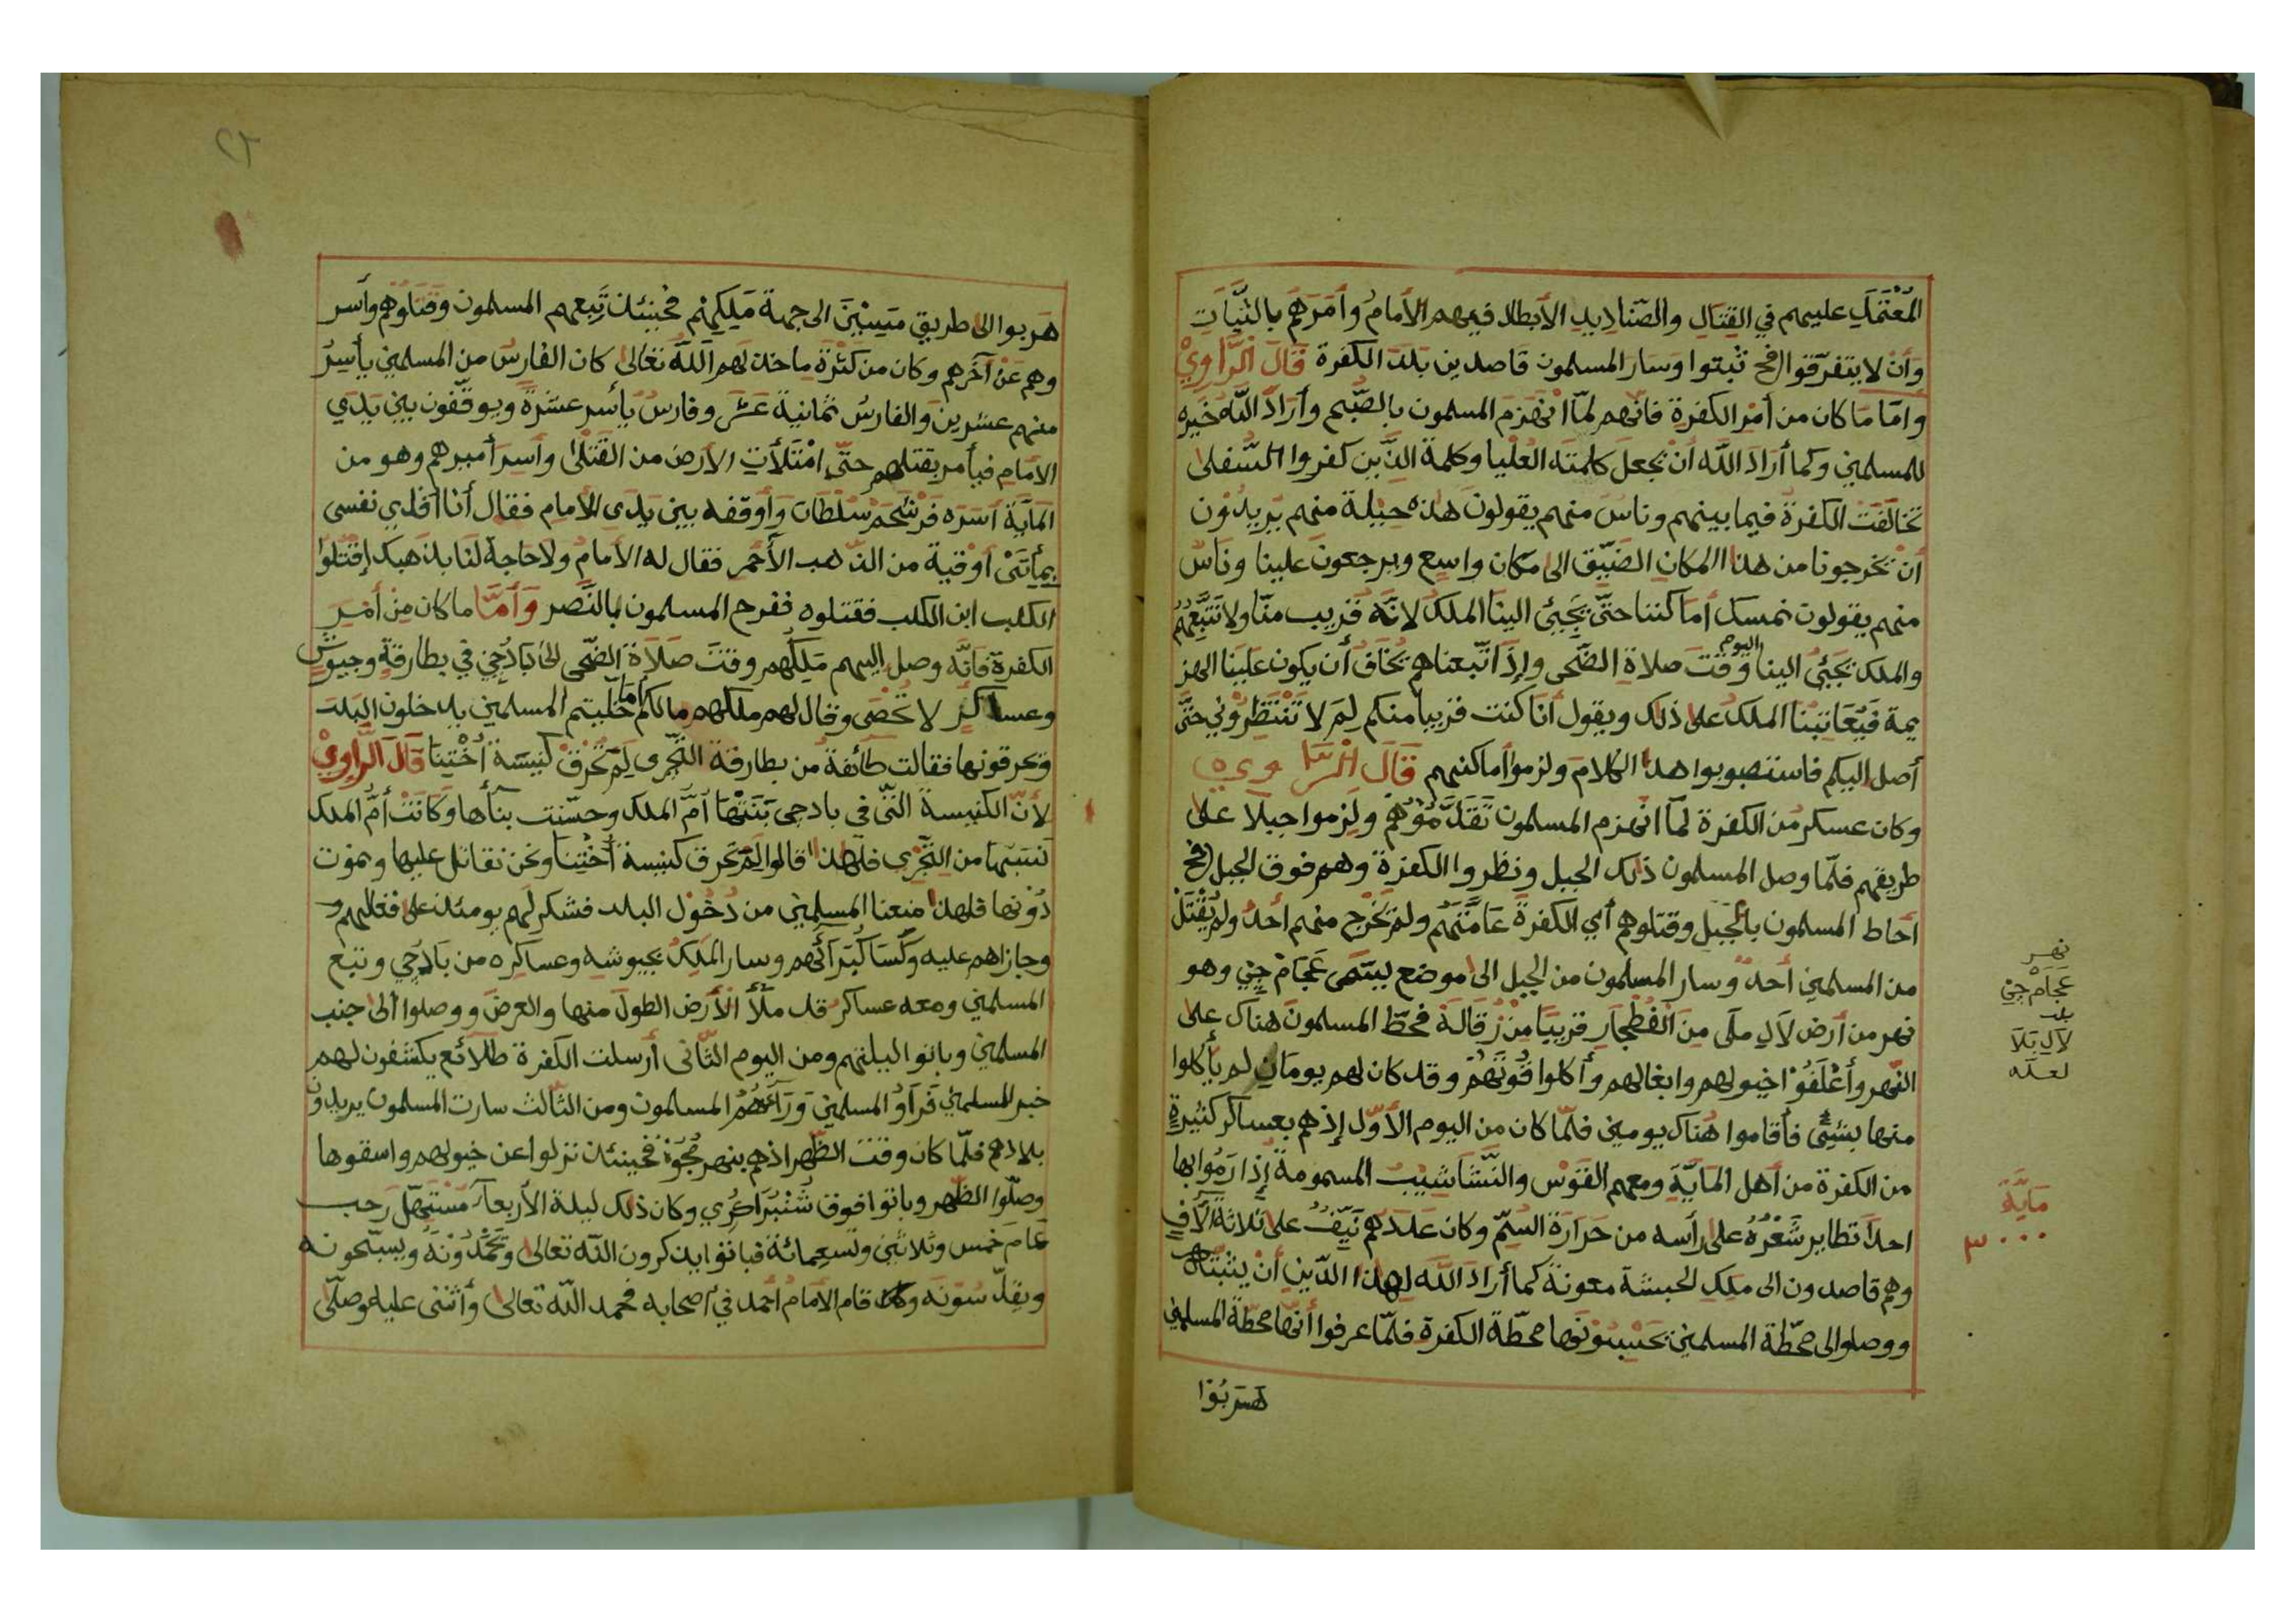 المُعْتَمَدِ عليهم في القِتَالِ والصّنادِيدِ الأبطال فيهم الأمامُ وأمَرَهُم بالثَّبَاتِ
وَأنْ لا يتفرّقوا فح ثبتوا وَسَارَ المسلمون قاصدين بَلَدَ الكفرة قَالَ الرَّاوِيْ
وامّا مَا كان من أمْرِ الكفرةِ فانّهم لمّا انْهَزمَ المسلمون بالصُّبح وأرَادَ اللّهُ خيره
للمسلمين وكما أرَادَ اللّه أنْ يجعل كلمتَه العُلْيا وكلمة الذّين كفروا السّفلى
تخالَفَتْ الكفرةُ فيما بينهم وناسٌ منهم يقولون هذه حيلة منهم يُرِيدُوْن
أنْ يخرجونا من هذا المكانِ الضّيّق الى مَكان واسع ويرجعونَ علينا وناسٌ
منهم يقولون نمسك أما كننا حتّى يَجِيئ الينا الملكُ لانّه قريب منّا ولا نَتَّبِعُهُمْ
والملك يَجِيْئُ الينا اليوم وقْتَ صلاةِ الضّحى وإذَا اتّبعناهم يُخَافُ أن يكون علينا الهز
يمة فيُعَاتِبُنا الملكُ على ذلك ويقول أنا كنت قريبا منكم لِمَ لا تَنْتَظِرُوْنِي حتَّى
أصل اليكم فاستصوبوا هذا الكلامَ ولزموا أماكنهم قَالَ الرَّاوِي ه
وكان عسكر من الكفرة لمّا انهزم المسلمون تَقَدَّمُوْهُم ولَزِموا جبلا على
طريقهم فلمّا وصل المسلمون ذلك الجبل ونظروا الكفرة وهم فوق الجبل فح
أحاط المسلمون بالجَبَلِ وقتلوهم أي الكفرةَ عَامَّتَهُم ولم يَخْرج منهم أحدٌ ولم يُقْتَلْ
من المسلمين أحدٌ وسار المسلمون من الجبل الى موضع يُسَمَّى عَجَامْ جِيْ وهو
نهر من أرض لَالِ مَلَى مِنَ الفُطْجَارِ قريبًا مِنْ زُقَالَهْ فحَطّ المسلمون هناك على
النّهر وأعْلَفُوْا خيولهم وابغالهم وأكلوا قُوْتَهُمْ وقد كان لهم يومَان لم يأكلوا
منها بشيْئٍ فأقاموا هُنَاك يومين فلمّا كان من اليوم الأوّل إذْ هم بعساكر كثيرةٍ
من الكفرة من أهل المَايَّةِ ومعهم القَوْس والنَّشَاشِيْبُ المسمومةُ إذا رَمُوا بها
احدًا تطاير شَعْرُهُ على رأسه من حَرَارَةِ السُّمّ وكان عَدَدُهُم نَيّفٌ على ثلاثة الآف
وهم قاصدون الى ملِكِ الحبشة معونةً كما أرادَ اللّه لهذا الدّين أنْ يثبّتَه
ووصلوا الى محطّة المسلمين يَحْسِبُوْنَها محطّة الكفرة فلمّا عرفوا أنّها محطّة المسلمين
هَرَبُوْا
نهر
عَجَامْ جِيْ
بلد
لَالِ بَلَا
لعله
مَايَّة
٣٠٠٠
٢٢
هَربوا الى طريق مَسِيْنَ الى جهة مَلِكِهم فحينئذ تَبِعهم المسلمون وقَتَلُوْهُم وأسر
وهم عَنْ آخَرِهم وكان من كَثْرَةِ ما خذلهم اللّه تعالى كان الفارسُ من المسلمين يأسِرُ
منهم عشرين والفارسُ ثمانية عَشَر وفارسٌ يأسر عشرةً ويوقّفون بين يَدَي
الأمام فيأمر بقتلهم حتّى امْتَلأتِ الأرضُ من القَتْلى وأسِرَ أميرهم وهو من
المَايَة أسَرَه فَرْشَحَمْ سُلْطَان وَأوقفه بين يدَي الأمام فقال أنا افْدي نفسى
بمِأتَيْ أوْقيةٍ من الذّهب الأحمر فقال له الأمامُ ولا حاجةَ لنَا بذهبك إقْتُلوا
الكلب ابن الكلب فقتلوه ففرح المسلمون بالنّصر وَأمَّا ما كان مِنْ أمْرِ
الكفرةِ فانّه وصل اليهم مَلِكُهم وقتَ صَلَاةِ الضّحى الى بَادُجِيْ في بطارقةٍ وجيوش
وعساكر لا تُحْصَى وقال لهم ملكهم ما لكم امَا خَلّيتم المسلمين يدخلون البلدَ
وتحرقونها فقالت طَائفةٌ من بطارقة التِّجْرى لِمَ تُحْرَقُ كنيسَة أخْتِنَا قَالَ الرَّاوِيْ
لأنّ الكنيسة الّتي في بادجى بَنَتْهَا أمُّ الملك وحسّنت بنأها وكَانَتْ أمُّ الملك
نسبَتهَا من التِّجْرى فلهذا قالوا لِمَ تُحرق كنيسة أخْتِنَا ونحن نقاتل عليها ونموت
دُوْنها فلهذا منعنا المسلمين من دُخُوْل البلد فشكرلهم يومئذ على فعالهم و
وجازاهم عليه وكَسَا كُبَرَائَهم وسار الملِكُ بجيوشه وعساكره من بَادُجِي وتبع
المسلمين ومعه عساكر قد ملأ الأرضَ الطولَ منها والعرضَ ووصلوا الى جنب
المسلمين وباتوا ليلتهم ومن اليوم الثّانى أرسلت الكفرة طلائع يكشفون لهم
خبر المسلمين فَرَأوُ المسلمينَ وَرَآهُمُ المسلمون ومن الثّالث سارت المسلمون يريدون
بلادهم فلمّا كان وقت الظّهر اذهم بنهر مُجُوْهْ فحينئذ نزلوا عن خيولهم واسقوها
وصلّوا الظّهر وباتوا فوق شَنْبُرَاكُرِي وكان ذلك ليلة الأربعاء مُسْتَهَلّ رَجب
عَامَ خمس وثلاثين وتسعمائة فباتوا يذكرون اللّه تعالى ويَحْمَدُوْنَهُ ويسبّحونه
ويقدّسُوْنَه وقام الأمَامُ أحْمد في أصحابه فحمد اللّه تعالى وأثنى عليه وصلّى